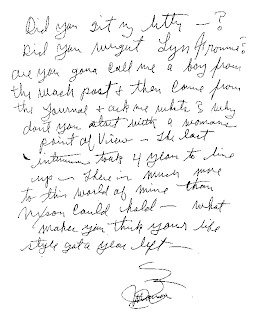 Did you get my letty — ?
Did you
are you gona call me a boy from
the wash post & then come from
the Journal & ask me whts 3 why
dont you start with a womans
point of View — The last
took 4 years to line
up — There is much more
to this world of mine than
could hold — what
makes you think your
style got a year left —